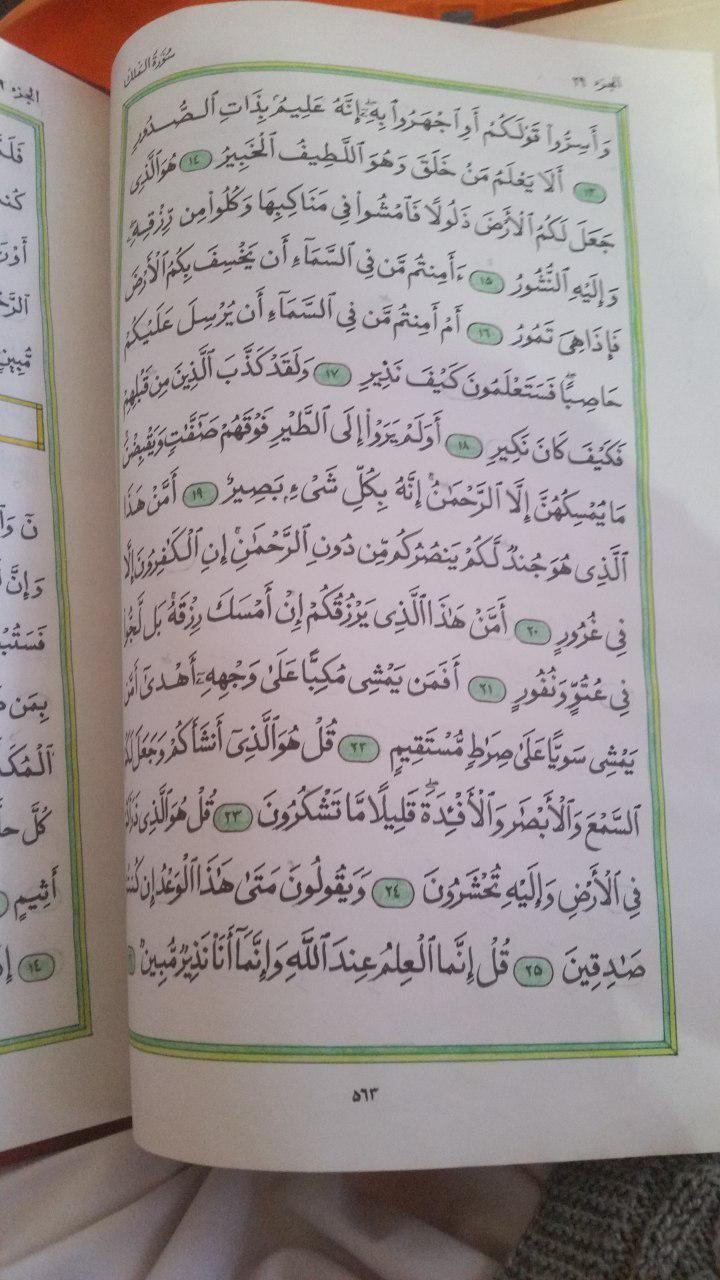 سُورَةُ المُلْكِ
الجزء ٢٩
وَأَسِرُّوا۟ قَوْلَكُمْ أَوِ ٱجْهَرُوا۟ بِهِۦٓ إِنَّهُۥ عَلِيمٌۢ بِذَاتِ ٱلصُّدُورِ
١٣ أَلَا يَعْلَمُ مَنْ خَلَقَ وَهُوَ ٱللَّطِيفُ ٱلْخَبِيرُ ١٤ هُوَ ٱلَّذِى
جَعَلَ لَكُمُ ٱلْأَرْضَ ذَلُولًا فَٱمْشُوا۟ فِى مَنَاكِبِهَا وَكُلُوا۟ مِن رِّزْقِهِۦ
وَإِلَيْهِ ٱلنُّشُورُ ١٥ ءَأَمِنتُم مَّن فِى ٱلسَّمَآءِ أَن يَخْسِفَ بِكُمُ ٱلْأَرْضَ
فَإِذَا هِىَ تَمُورُ ١٦ أَمْ أَمِنتُم مَّن فِى ٱلسَّمَآءِ أَن يُرْسِلَ عَلَيْكُمْ
حَاصِبًا فَسَتَعْلَمُونَ كَيْفَ نَذِيرِ ١٧ وَلَقَدْ كَذَّبَ ٱلَّذِينَ مِن قَبْلِهِمْ
فَكَيْفَ كَانَ نَكِيرِ ١٨ أَوَلَمْ يَرَوْا۟ إِلَى ٱلطَّيْرِ فَوْقَهُمْ صَٰٓفَّٰتٍ وَيَقْبِضْنَ
مَا يُمْسِكُهُنَّ إِلَّا ٱلرَّحْمَٰنُ إِنَّهُۥ بِكُلِّ شَىْءٍۭ بَصِيرٌ ١٩ أَمَّنْ هَٰذَا
ٱلَّذِى هُوَ جُندٌ لَّكُمْ يَنصُرُكُم مِّن دُونِ ٱلرَّحْمَٰنِ إِنِ ٱلْكَٰفِرُونَ إِلَّا
فِى غُرُورٍ ٢٠ أَمَّنْ هَٰذَا ٱلَّذِى يَرْزُقُكُمْ إِنْ أَمْسَكَ رِزْقَهُۥ بَل لَّجُّوا۟
فِى عُتُوٍّ وَنُفُورٍ ٢١ أَفَمَن يَمْشِى مُكِبًّا عَلَىٰ وَجْهِهِۦٓ أَهْدَىٰٓ أَمَّن
يَمْشِى سَوِيًّا عَلَىٰ صِرَٰطٍ مُّسْتَقِيمٍ ٢٢ قُلْ هُوَ ٱلَّذِىٓ أَنشَأَكُمْ وَجَعَلَ لَكُمُ
ٱلسَّمْعَ وَٱلْأَبْصَٰرَ وَٱلْأَفْـِٔدَةَ قَلِيلًا مَّا تَشْكُرُونَ ٢٣ قُلْ هُوَ ٱلَّذِى
فِى ٱلْأَرْضِ وَإِلَيْهِ تُحْشَرُونَ ٢٤ وَيَقُولُونَ مَتَىٰ هَٰذَا ٱلْوَعْدُ إِن كُنتُمْ
صَٰدِقِينَ ٢٥ قُلْ إِنَّمَا ٱلْعِلْمُ عِندَ ٱللَّهِ وَإِنَّمَآ أَنَا۠ نَذِيرٌ مُّبِينٌ
٥٦٣